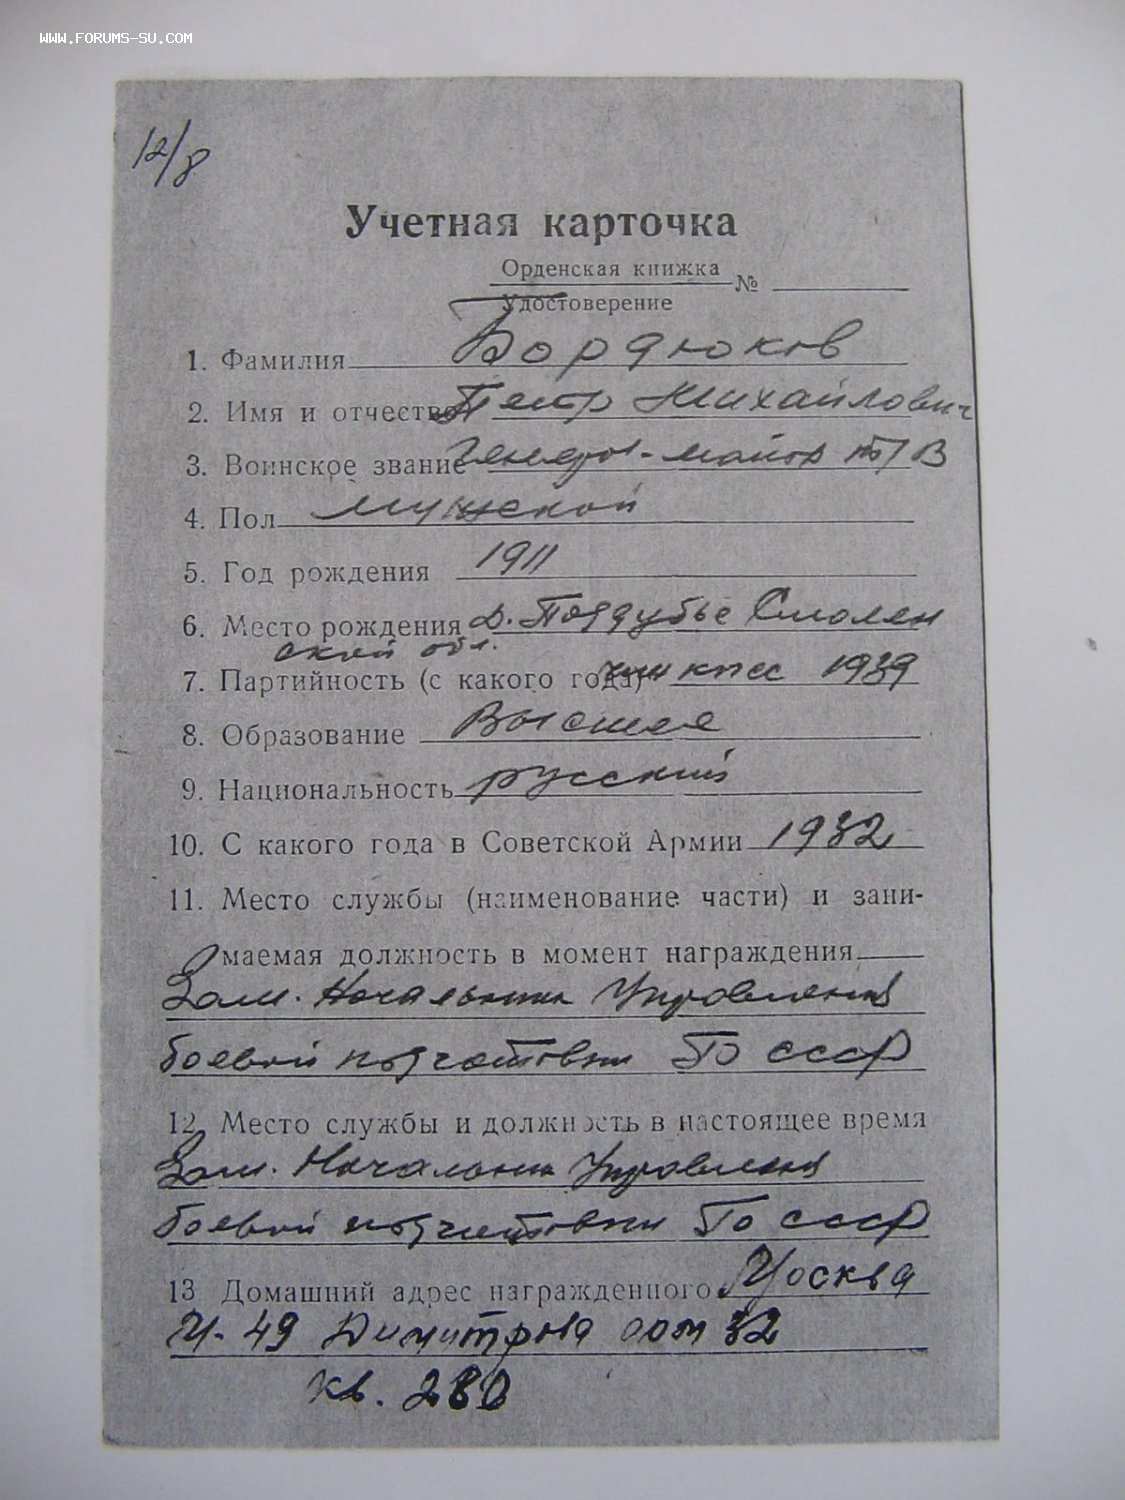 WWW.FORUMS-SU.COM
12/8
Учетная карточка
Орденская книжка
Удостоверение №
1. Фамилия Бордюков
2. Имя и отчество Петр Михайлович
3. Воинское звание Генерал-майор т/в
4. Пол мужской
5. Год рождения 1911
6. Место рождения д. Поддубье Смолен
ской обл.
7. Партийность (с какого года) член кпсс 1939
8. Образование Высшее
9. Национальность русский
10. С какого года в Советской Армии 1932
11. Место службы (наименование части) и зани-
маемая должность в момент награждения
Зам. Начальника Управления
боевой подготовки ГО СССР
12. Место службы и должность в настоящее время
Зам. Начальника Управления
боевой подготовки ГО СССР
13 Домашний адрес награжденного Москва
И-49 Димитрова дом 32
кв. 280